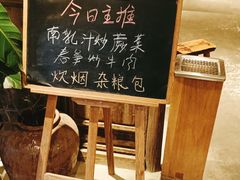 今日主推
南乳汁炒蕨菜
卷笋炒牛肉
炊烟杂粮包